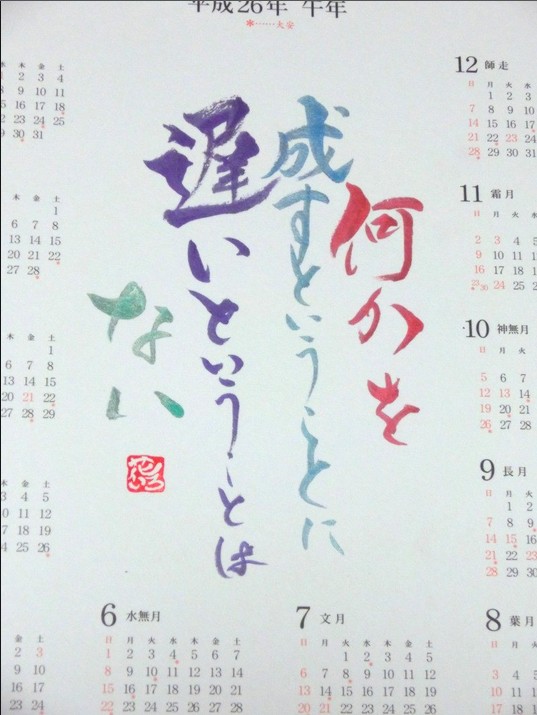 平成26年 午年
＊……大安
何かを
成すということに
遅いということは
ない
木 金 土
2 3 4
9 10 11
16 17 18
23 24 25
30 31
木 金 土
1
6 7 8
13 14 15
20 21 22
27 28
木 金 土
1
6 7 8
13 14 15
20 21 22
27 28 29
木 金 土
3 4 5
10 11 12
17 18 19
24 25 26
金 土
2 3
9 10
16 17
23 24
6 水無月
日 月 火 水 木 金 土
1 2 3 4 5 6 7
8 9 10 11 12 13 14
15 16 17 18 19 20 21
22 23 24 25 26 27 28
7 文月
日 月 火 水 木 金 土
1 2 3 4 5
6 7 8 9 10 11 12
13 14 15 16 17 18 19
20 21 22 23 24 25 26
8 葉月
日 月 火
3 4 5
10 11 12
17 18 19
9 長月
日 月 火
1 2
7 8 9
14 15 16
21 22 23
28 29 30
10 神無月
日 月 火
5 6 7
12 13 14
19 20 21
26 27 28
11 霜月
日 月 火 水
2 3 4 5
9 10 11 12
16 17 18 19
23/30 24 25 26
12 師走
日 月 火 水
1 2 3
7 8 9 10
14 15 16 17
21 22 23 24
28 29 30 31